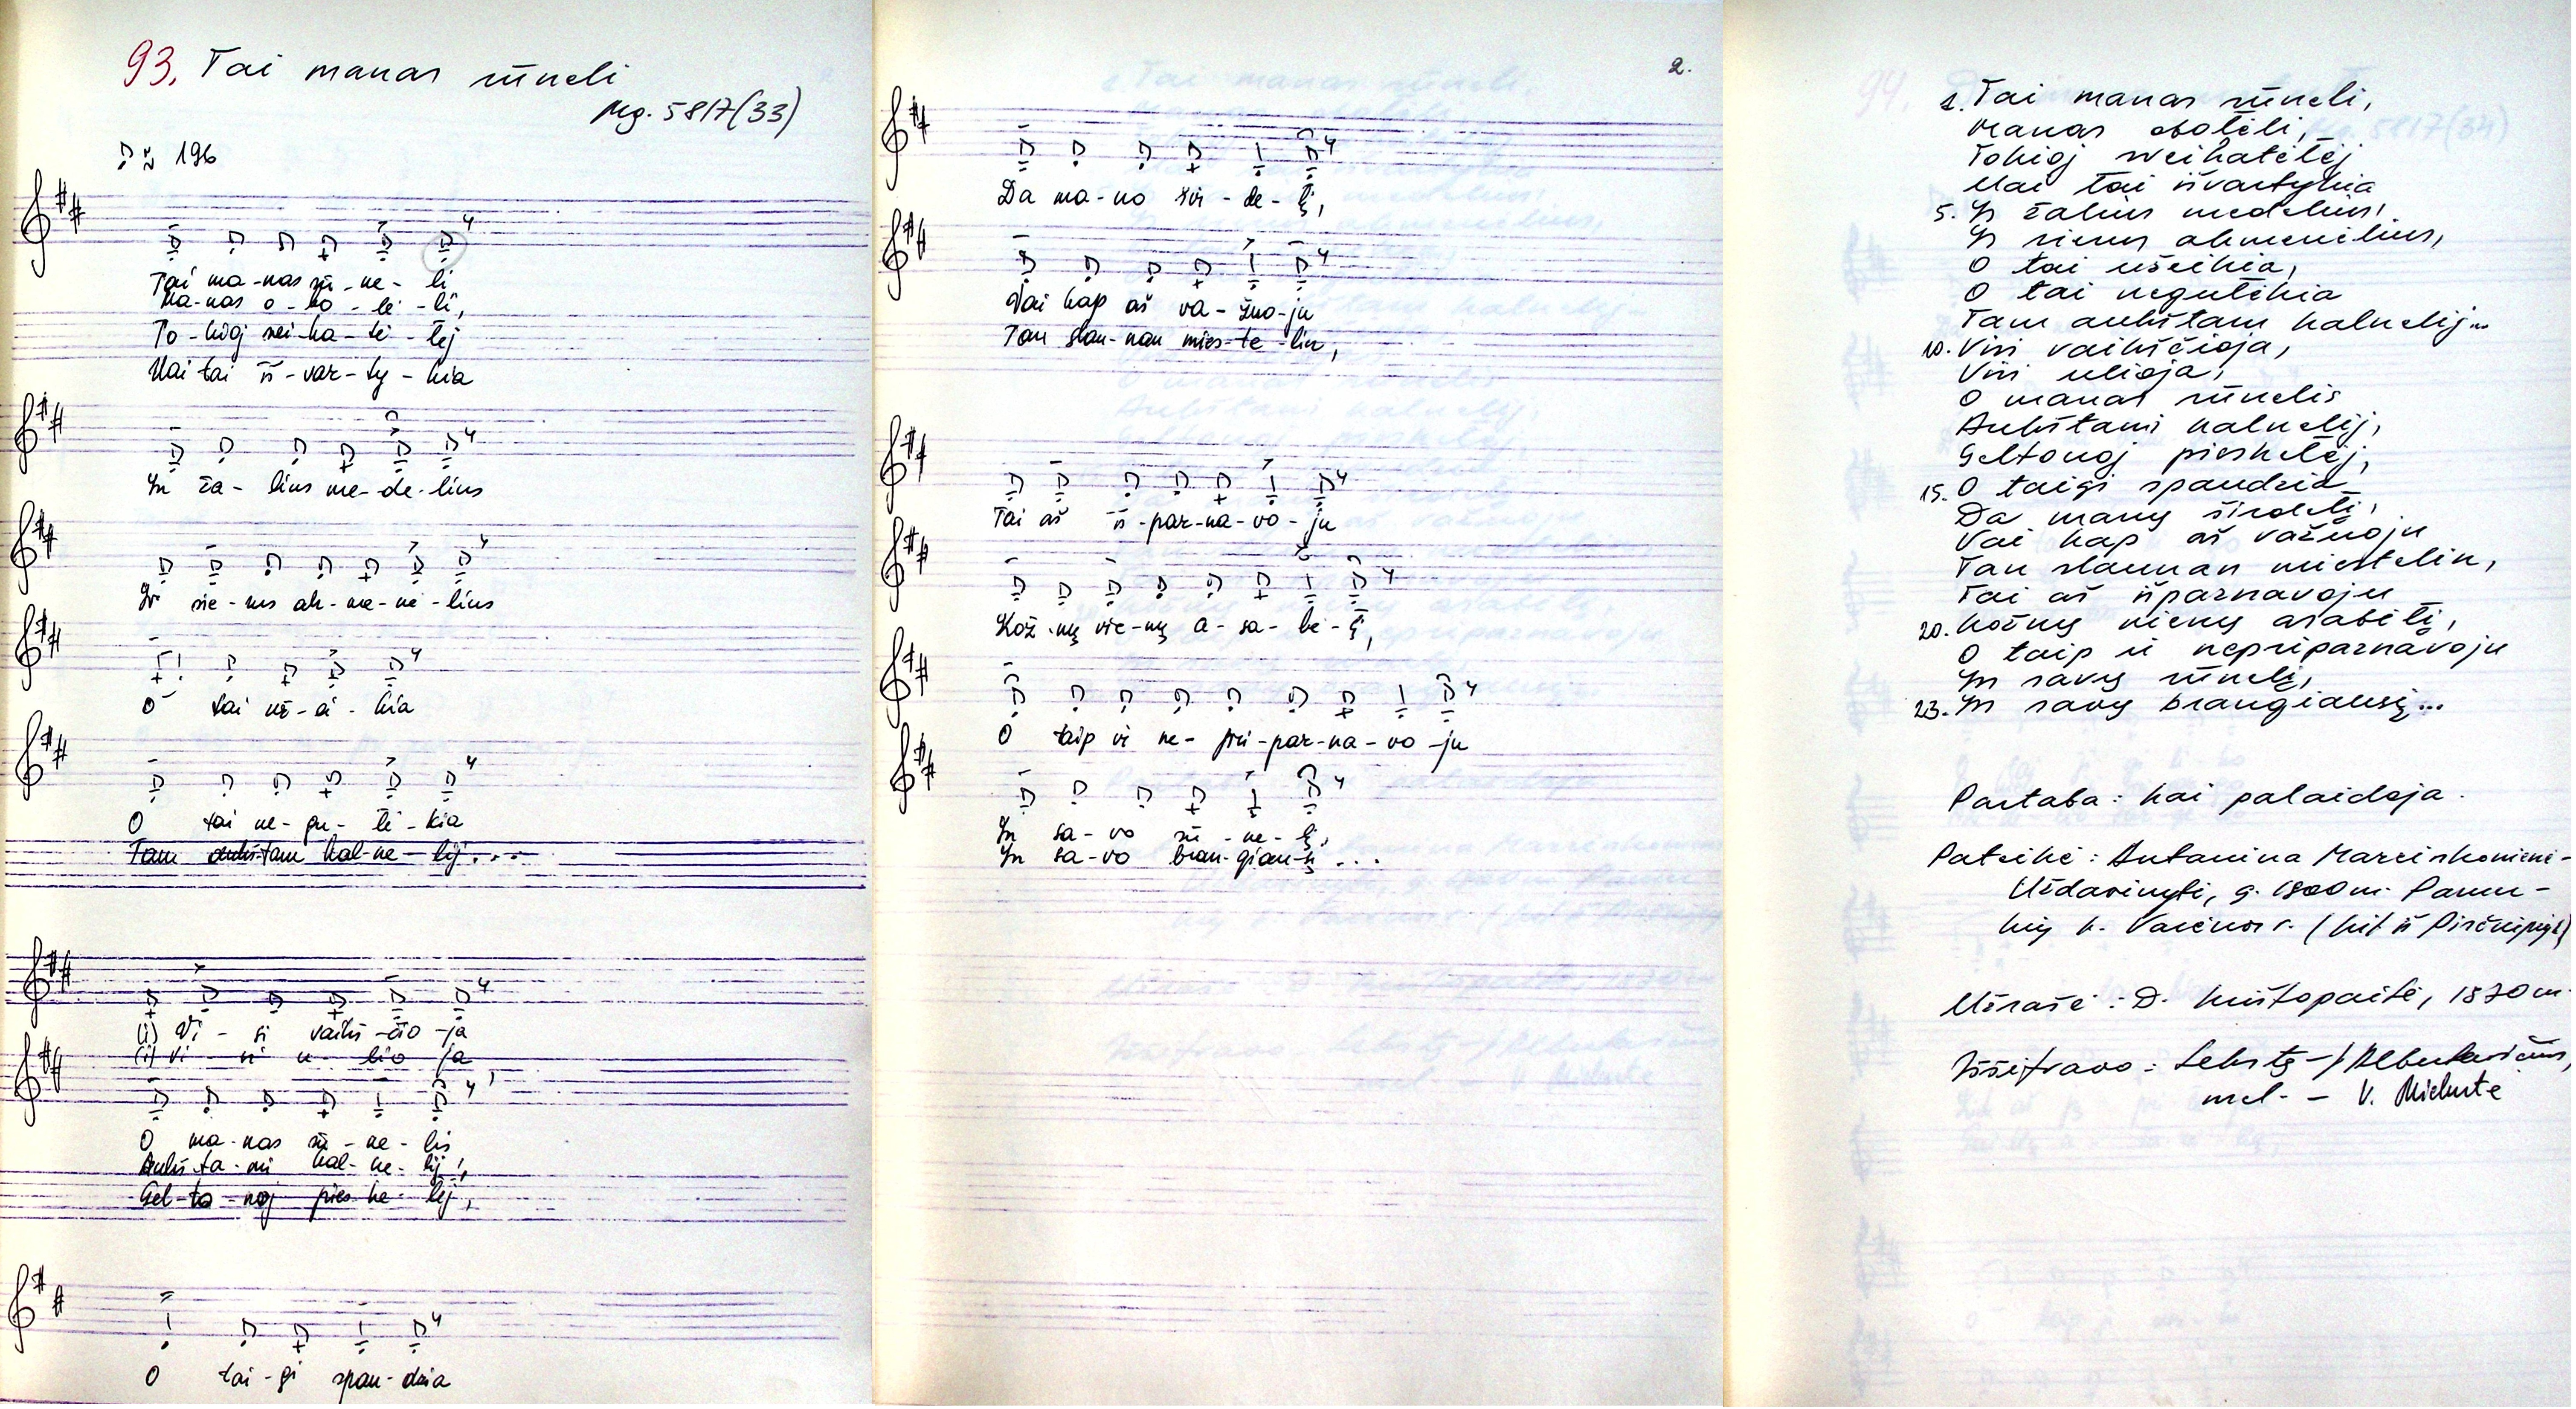 93. Tai manas sūneli
Mg. 5817(33)
≈ 196
Tai ma-nas sū-ne-li
Ma-nas o-bo-lė-li,
To-kioj svei-ka-tė-lėj
Kai tai iš-var-ty-kia
Yr ža-lius me-de-lius
Yr sie-rus ak-me-nė-lius
O tai už-ei-kia
O tai ne-gu-lė-kia
Tam aukš-tam kal-ne-lij...
(i) Vi-si vaikš-čio-ja
(i) vi-si u-lio-ja
O ma-nas sū-ne-lis
Aukš-ta-mi kal-ne-lij,
Gel-to-noj pies-ke-lėj,
O tai-gi spau-dzia
2.
Da ma-no šir-de-lį,
Vai kap aš va-žuo-ju
Tan slau-nan mies-te-lin,
Tai aš iš-par-na-vo-ju
Kož-nų vie-nų a-sa-bė-lį,
O taip vi ne-pri-par-na-vo-ju
Yr sa-vo sū-ne-lį,
Yr sa-vo bran-giau-sį...
1. Tai manas sūneli,
Manas obolėli,
Tokioj sveikatėlėj
Kai tai išvartykia
5. Yr žalius medelius,
Yr sierus akmenėlius,
O tai užeikia,
O tai negulėkia
Tam aukštam kalnelij...
10. Visi vaikščioja,
Visi ulioja,
O manas sūnelis
Aukštami kalnelij,
Geltonoj pieskelėj,
15. O taigi spaudzia
Da manų širdelį,
Vai kap aš važuoju
Tan slaunan miestelin,
Tai aš išparnavoju
20. Kožnų vienų asabėlį,
O taip ir nepriparnavoju
Yr savų sūnelį,
23. Yr savų brangiausį...
Pastaba: kai palaidoja.
Pateikė: Antanina Marcinkonienė-
Uždavinytė, g. 1900 m. Pamer-
kių k. Varėnos r. (kil. iš
Užrašė: D. Krištopaitė, 1970 m.
Iššifravo: tekstą –
mel. – V.